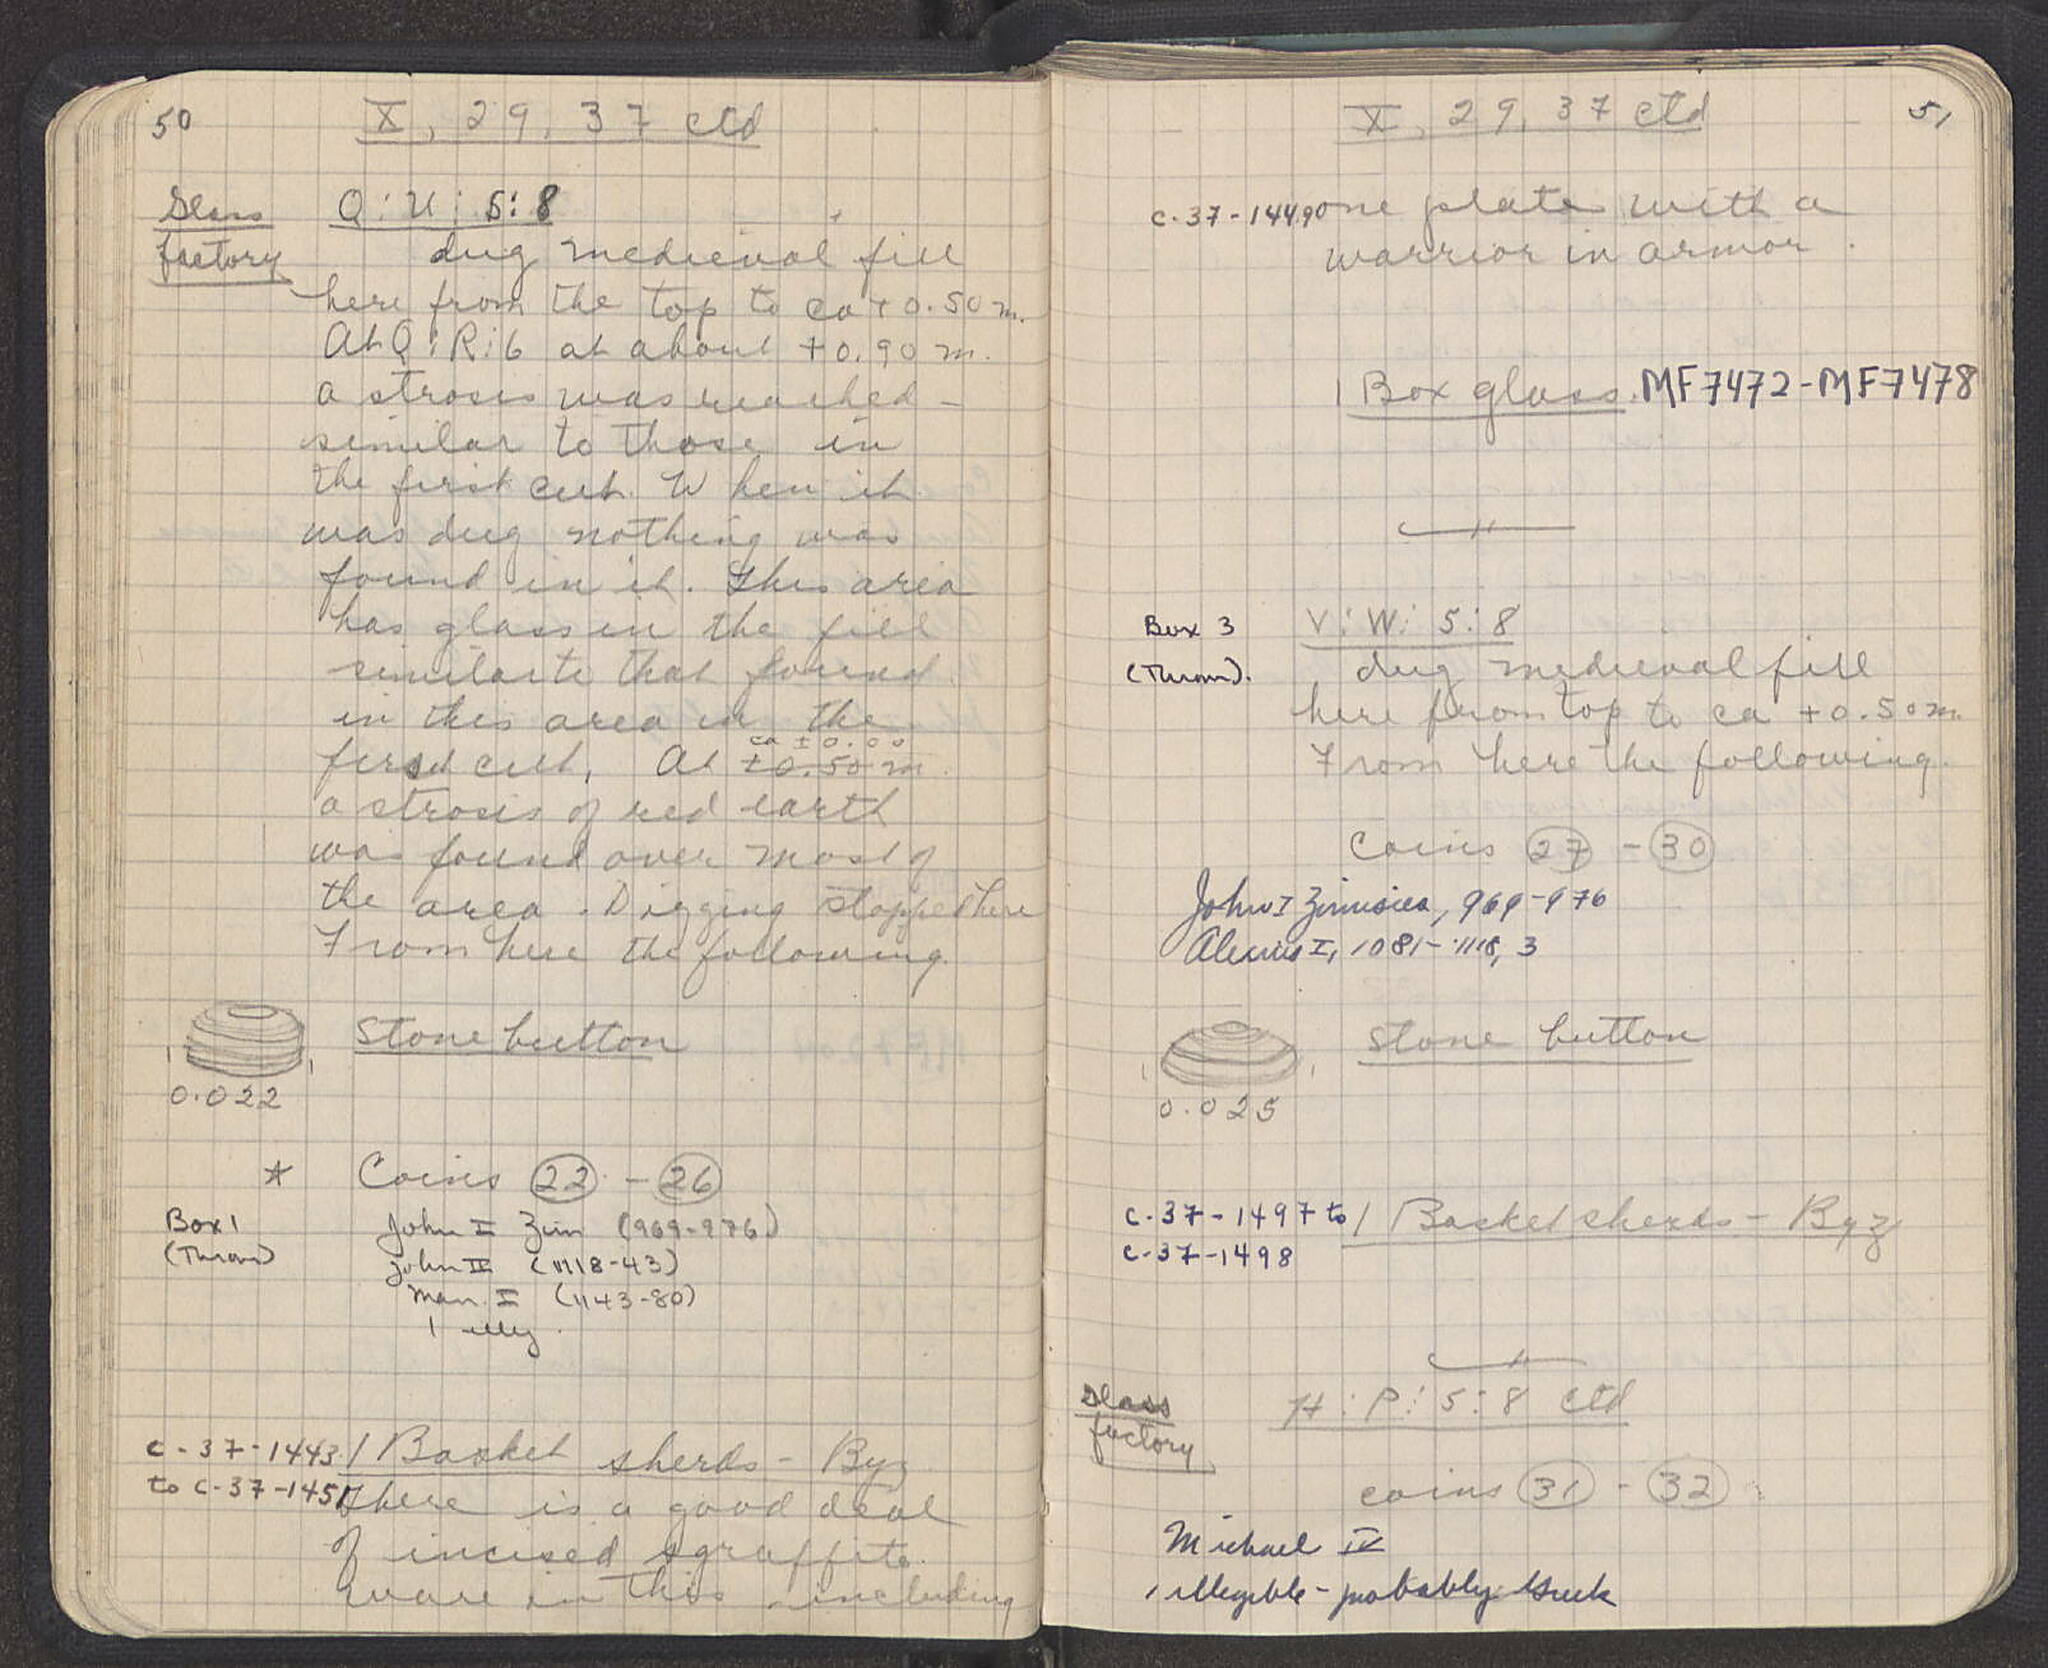 50
X, 29, 37 ctd
Glass
factory
Q:U:5:8
dug medieval fill
here from the top to ca +0.50 m.
At Q:R:6 at about +0.90 m.
a strosis was reached -
similar to those in
the first cut. When it
was dug nothing was
found in it. This area
has glass in the fill
similar to that found
in this area in the
ca ±0.00
first cut. At ±0.50 m.
a strosis of red earth
was found over most of
the area. Digging stopped here
From here the following.
Stone button
0.022
* Coins 22 - 26
Box 1
(Thron)
John I Zim (969-976)
John II (1118-43)
Man. I (1143-80)
1 illeg.
C-37-1443
to C-37-1451
1 Basket sherds - Byz
There is a good deal
of incised sgraffito
ware in this including
51
X, 29, 37 ctd
C-37-1449
one plate with a
warrior in armor.
1 Box glass. MF7472-MF7478
Box 3
(Thron).
V:W:5:8
dug medieval fill
here from top to ca +0.50 m.
From here the following.
Coins 27 - 30
John I Zimisces, 969-976
Alexius I, 1081-1118, 3
Stone button
0.025
C-37-1497 to
C-37-1498
1 Basket sherds - Byz
Glass
factory
H:P:5:8 ctd
coins 31 - 32
Michael IV
1 illegible - probably Greek